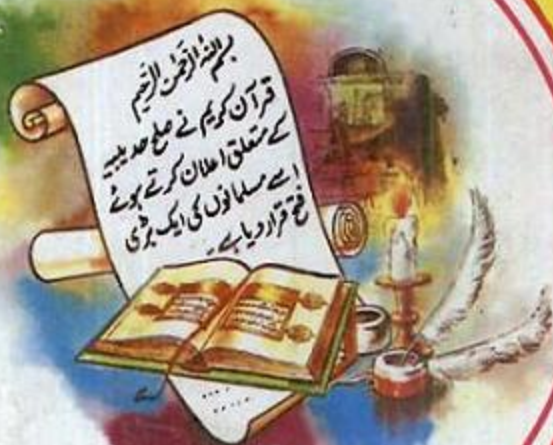 بسم اللہ الرحمٰن الرحیم
قرآن کریم نے صلح حدیبیہ
کے متعلق اعلان کرتے ہوئے
اسے مسلمانوں کی ایک بڑی
فتح قرار دیا ہے۔